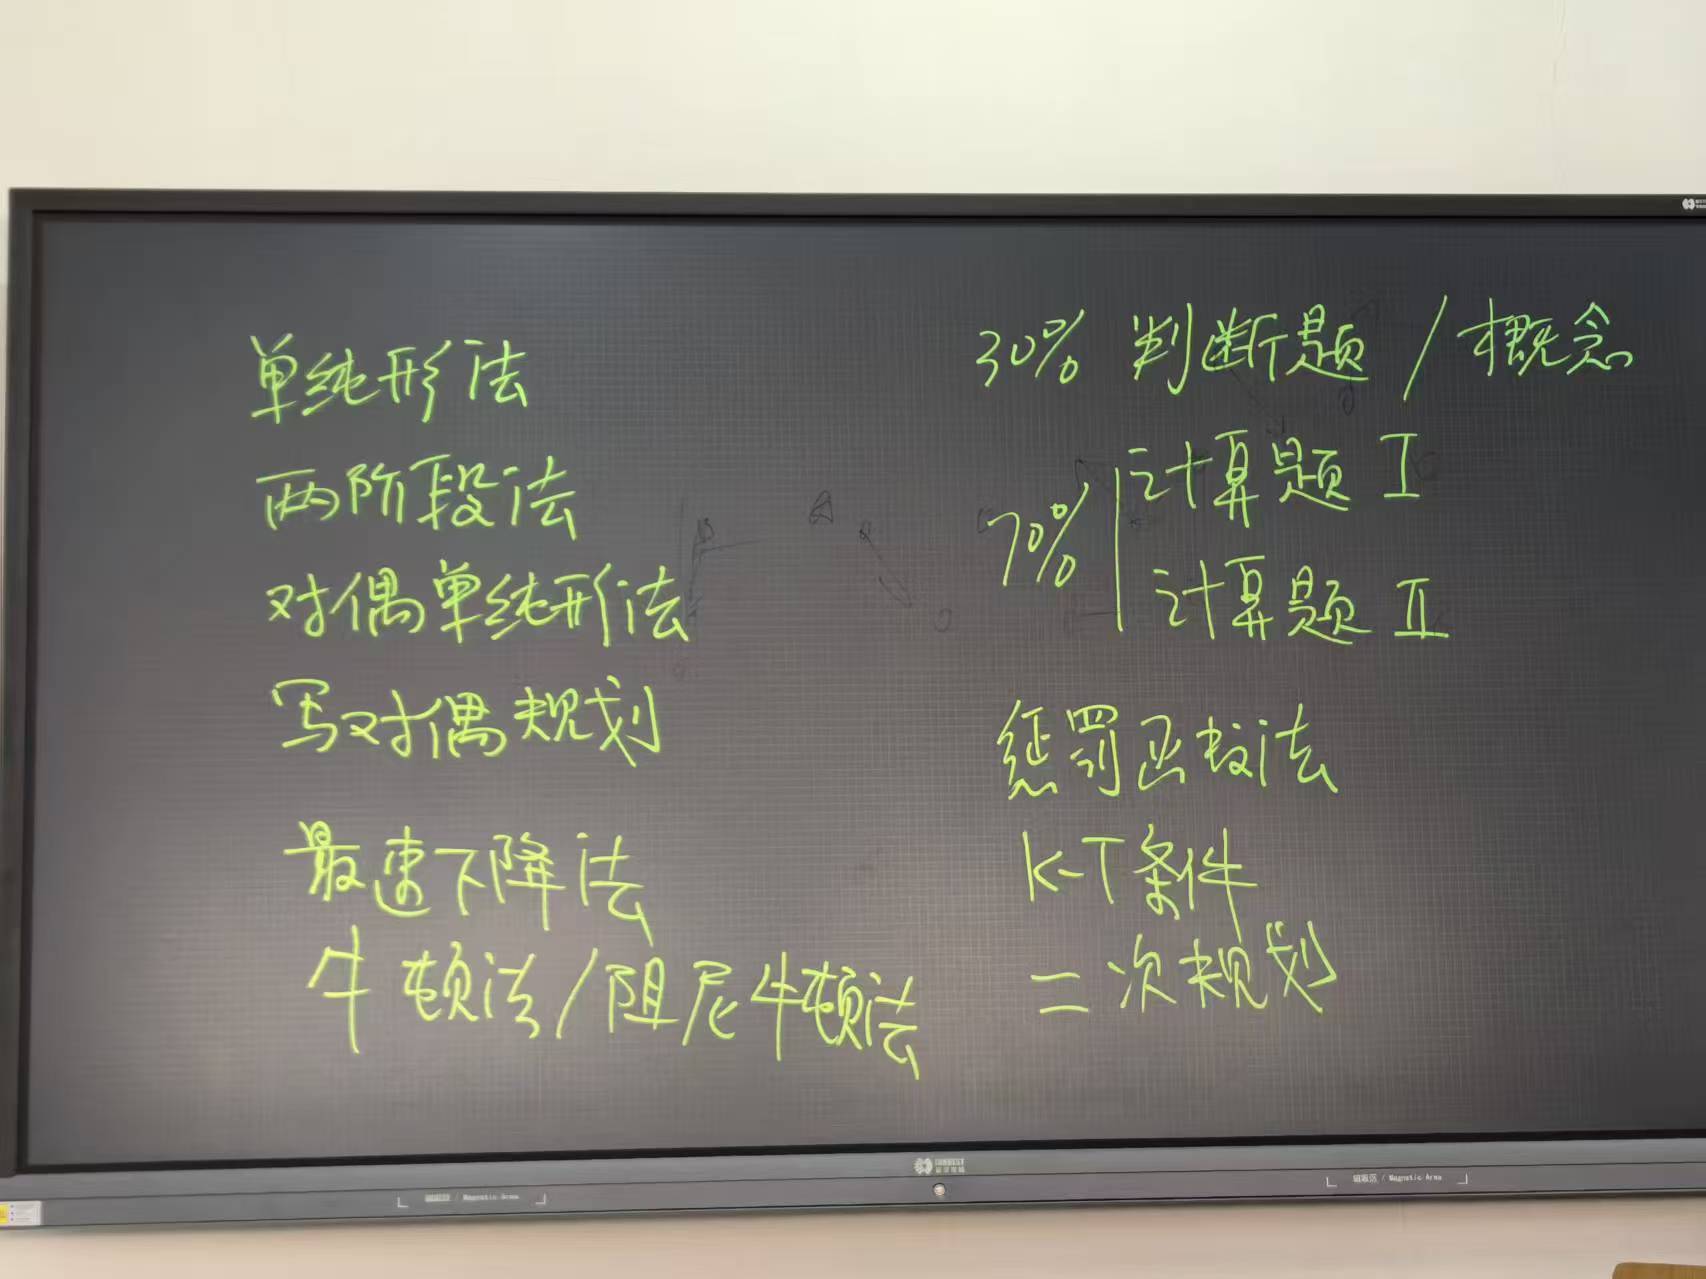 单纯形法
两阶段法
对偶单纯形法
写对偶规划
最速下降法
牛顿法/阻尼牛顿法
30% 判断题/概念
70% 计算题 I
计算题 II
惩罚函数法
K-T条件
二次规划
Magnetic Area
磁吸区 / Magnetic Area